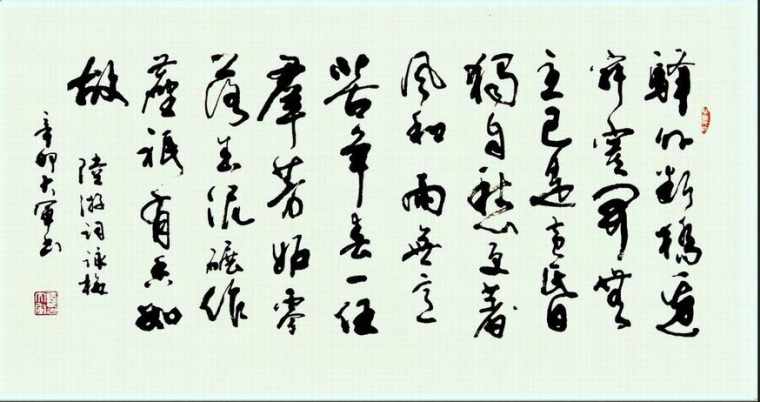 驛外斷橋邊
寂寞開無
主已是黄昏
獨自愁更著
風和雨無意
苦争春一任
羣芳妒零
落成泥碾作
塵祇有香如
故
陸游詞詠梅
辛卯大軍书